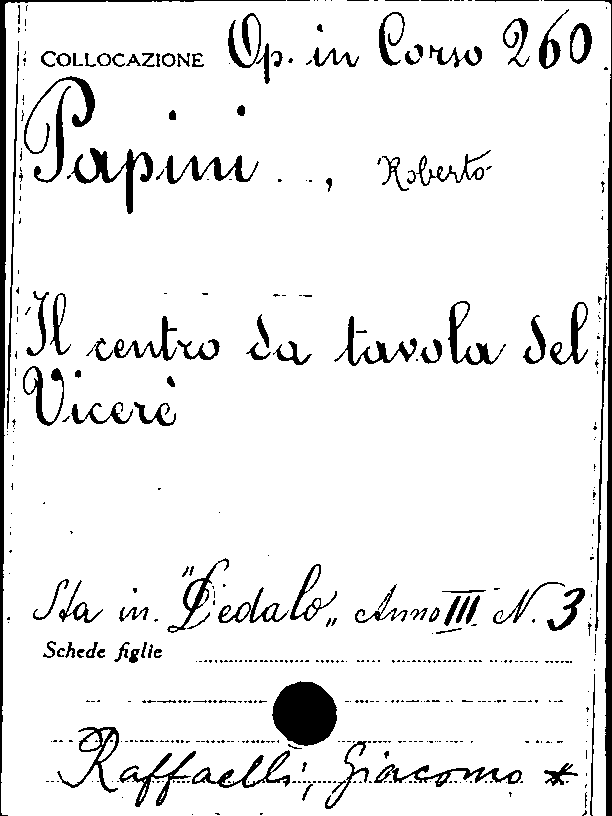 COLLOCAZIONE Op. in Corso 260
Papini , Roberto
Il centro da tavola del
Vicerè
Sta in "Dedalo„ Anno III N. 3
Schede figlie
Raffaelli, Giacomo *